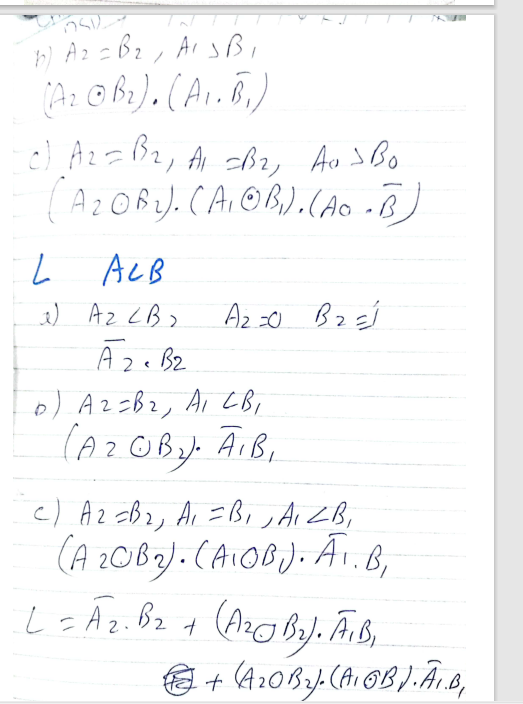 b) A2 = B2, A1 > B1
(A2 ⊙ B2).(A1.B̄1)
c) A2 = B2, A1 = B2, A0 > B0
(A2 ⊙ B2).(A1 ⊙ B1).(A0 . B̄)
L A<B
a) A2 < B2 A2 = 0 B2 = 1
Ā2 . B2
b) A2 = B2, A1 < B1
(A2 ⊙ B2). Ā1B1
c) A2 = B2, A1 = B1, A1 < B1
(A2 ⊙ B2).(A1 ⊙ B1). Ā1. B1
L = Ā2. B2 + (A2 ⊙ B2). Ā1B1
+ (A2 ⊙ B2).(A1 ⊙ B).Ā1.B1